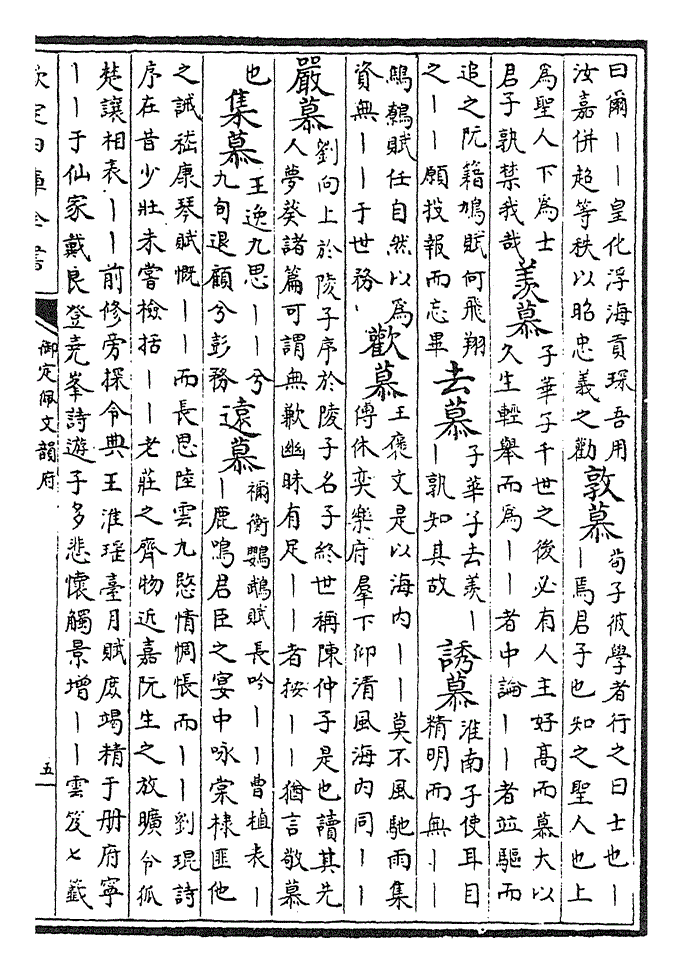 曰爾丨丨皇化浮海貢琛吾用
汝嘉併超等秩以昭忠義之勸
敦慕
荀子彼學者行之曰士也丨
丨焉君子也知之聖人也上
為聖人下為士
君子孰禁我哉
羨慕
子華子千世之後必有人主好髙而慕大以
久生輕舉而為丨丨者中論丨丨者並驅而
追之阮籍鳩賦何飛翔
之丨丨願投報而忘畢
去慕
子華子去羨丨
丨孰知其故
誘慕
淮南子使耳目
精明而無丨丨
鷦鷯賦任自然以為
資無丨丨于世務
歡慕
王褒文是以海内丨丨莫不風馳雨集
傅休奕樂府羣下仰清風海内同丨丨
嚴慕
劉向上於陵子序於陵子名子終世稱陳仲子是也讀其先
人夢葵諸篇可謂無歉幽昧有足丨丨者按丨丨猶言敬慕
也
集慕
王逸九思丨丨兮
九旬退顧兮彭務
遠慕
禰衡鸚鵡賦長吟丨丨曹植表丨
丨鹿鳴君臣之宴中咏棠棣匪他
之誡嵇康琴賦慨丨丨而長思陸雲九愍情惆悵而丨丨劉琨詩
序在昔少壯未嘗檢括丨丨老莊之齊物近嘉阮生之放曠令狐
楚讓相表丨丨前修旁探令典王淮瑶臺月賦庶竭精于册府寧
丨丨于仙家戴良登堯峯詩遊子多悲懷觸景增丨丨雲笈七籤
欽定四庫全書
御定佩文韻府
五